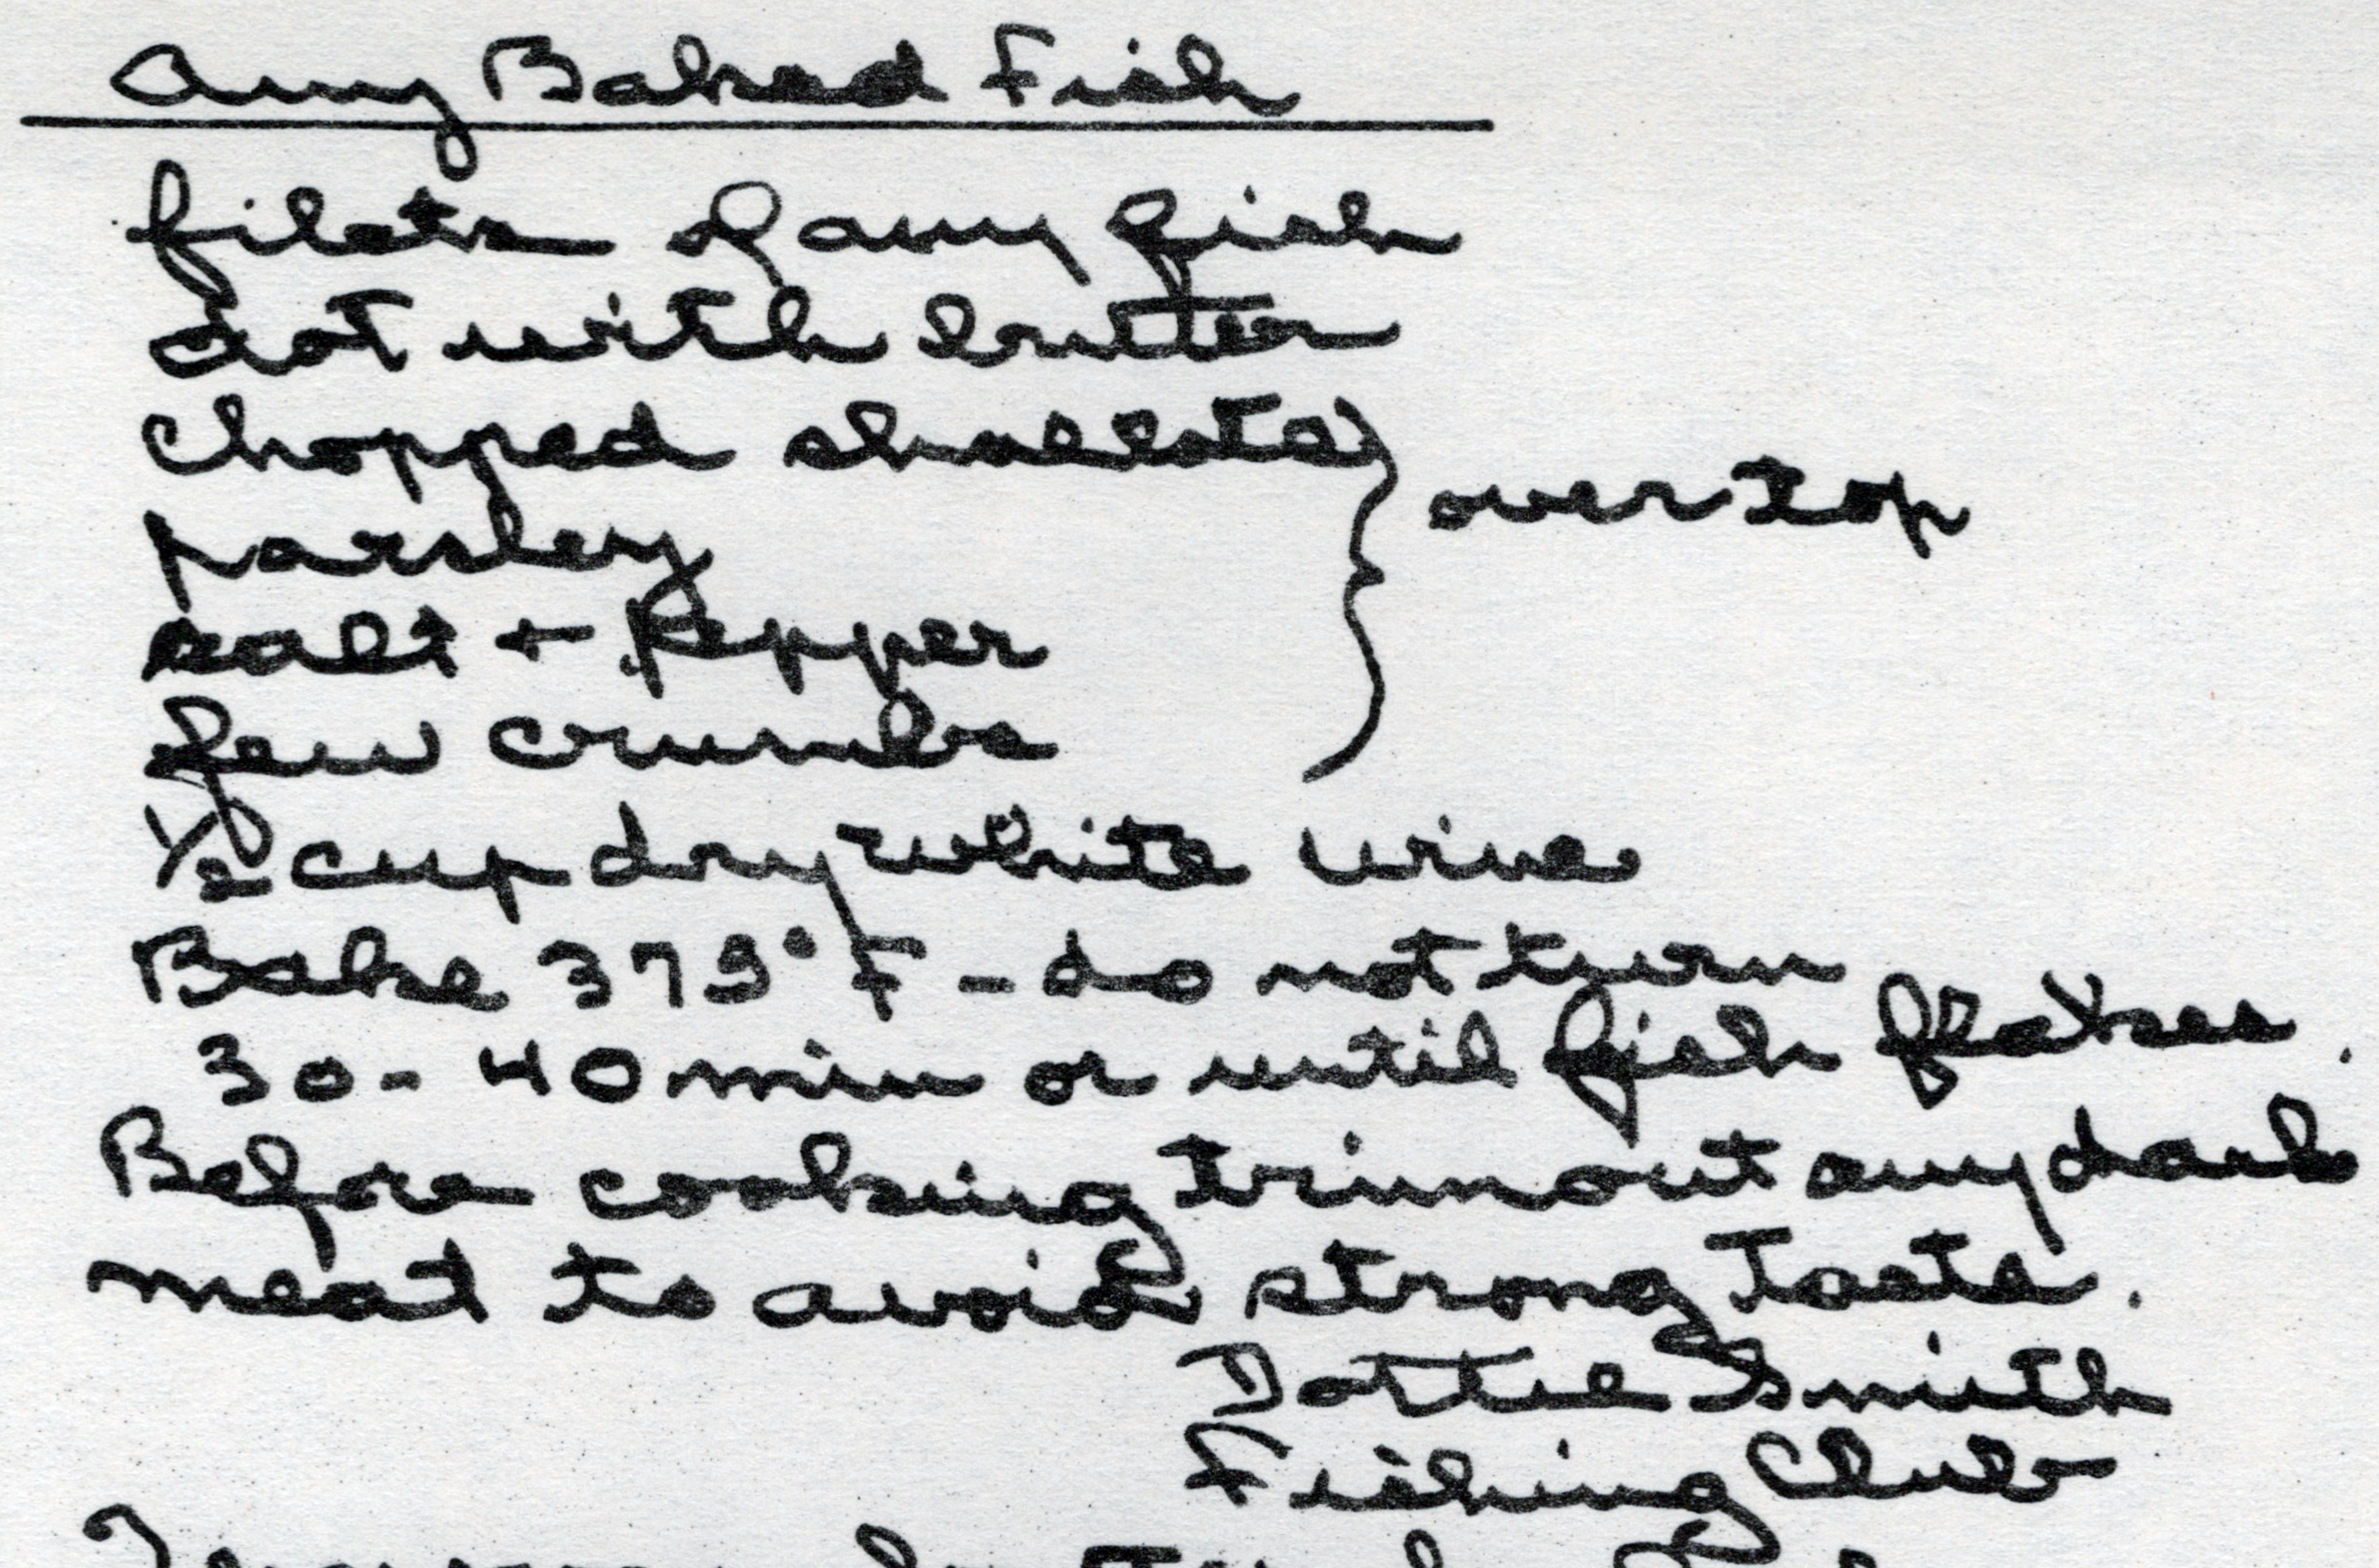 Any Baked Fish
filets of any fish
dot with butter
chopped shallots } over top
parsley
salt + Pepper
few crumbs
1/2 cup dry white wine
Bake 375° F - do not turn
30-40 min or until fish flakes.
Before cooking trim out any dark
meat to avoid strong taste.
Dottie Smith
Fishing Club